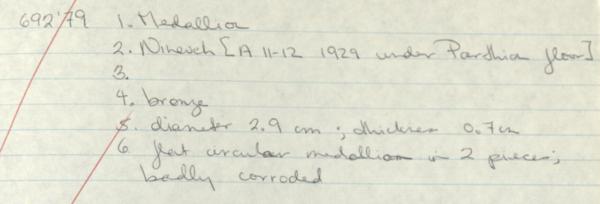 692'79 1. Medallion
2. Nineveh [A 11-12 1929 under Parthian floor]
3.
4. bronze
5. diameter 2.9 cm ; thickness 0.7cm
6 flat circular medallion in 2 pieces;
badly corroded